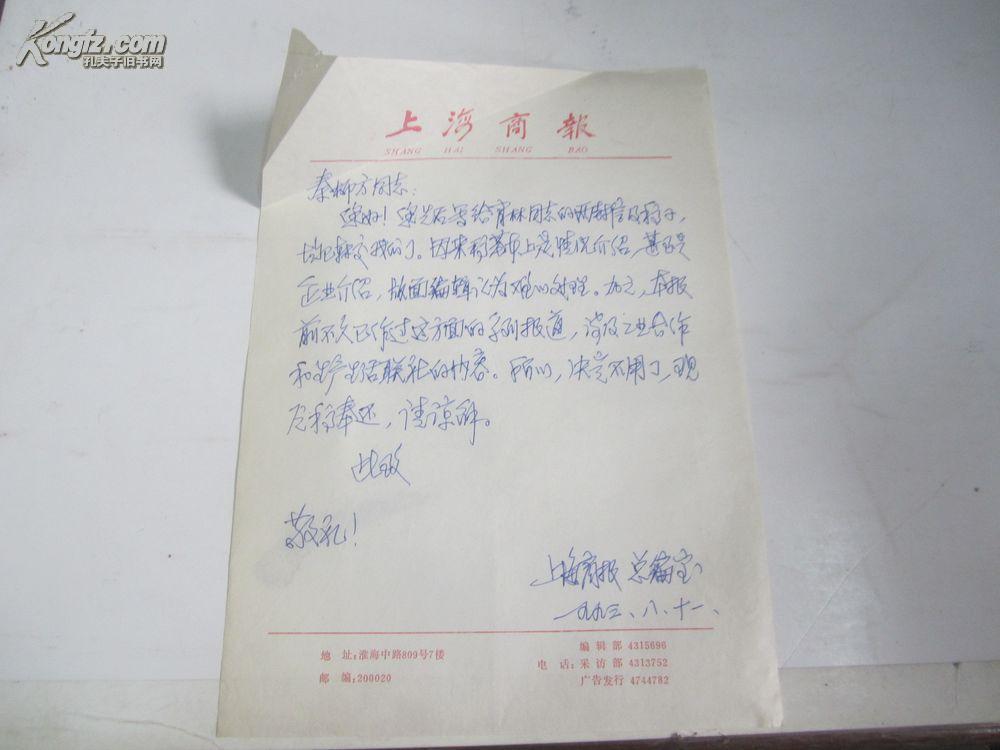 Kongfz.com
孔夫子旧书网
上海商報
SHANG HAI SHANG BAO
秦柳方同志：
您好！您先后写给育林同志的两封信及稿子，
均已转交我们了。因来稿基本上是情况介绍，甚至是
企业介绍，版面编辑认为难以处理。加之，本报
前不久已作过这方面的系列报道，涉及工业合作
和生产生活联社的内容。所以，决定不用了，现
总稿奉还，请谅解。
此致
敬礼！
上海商报 总编室
一九九三、八、十一、
地 址：淮海中路809号7楼
邮 编：200020
编 辑 部 4315696
电 话：采 访 部 4313752
广告发行 4744782